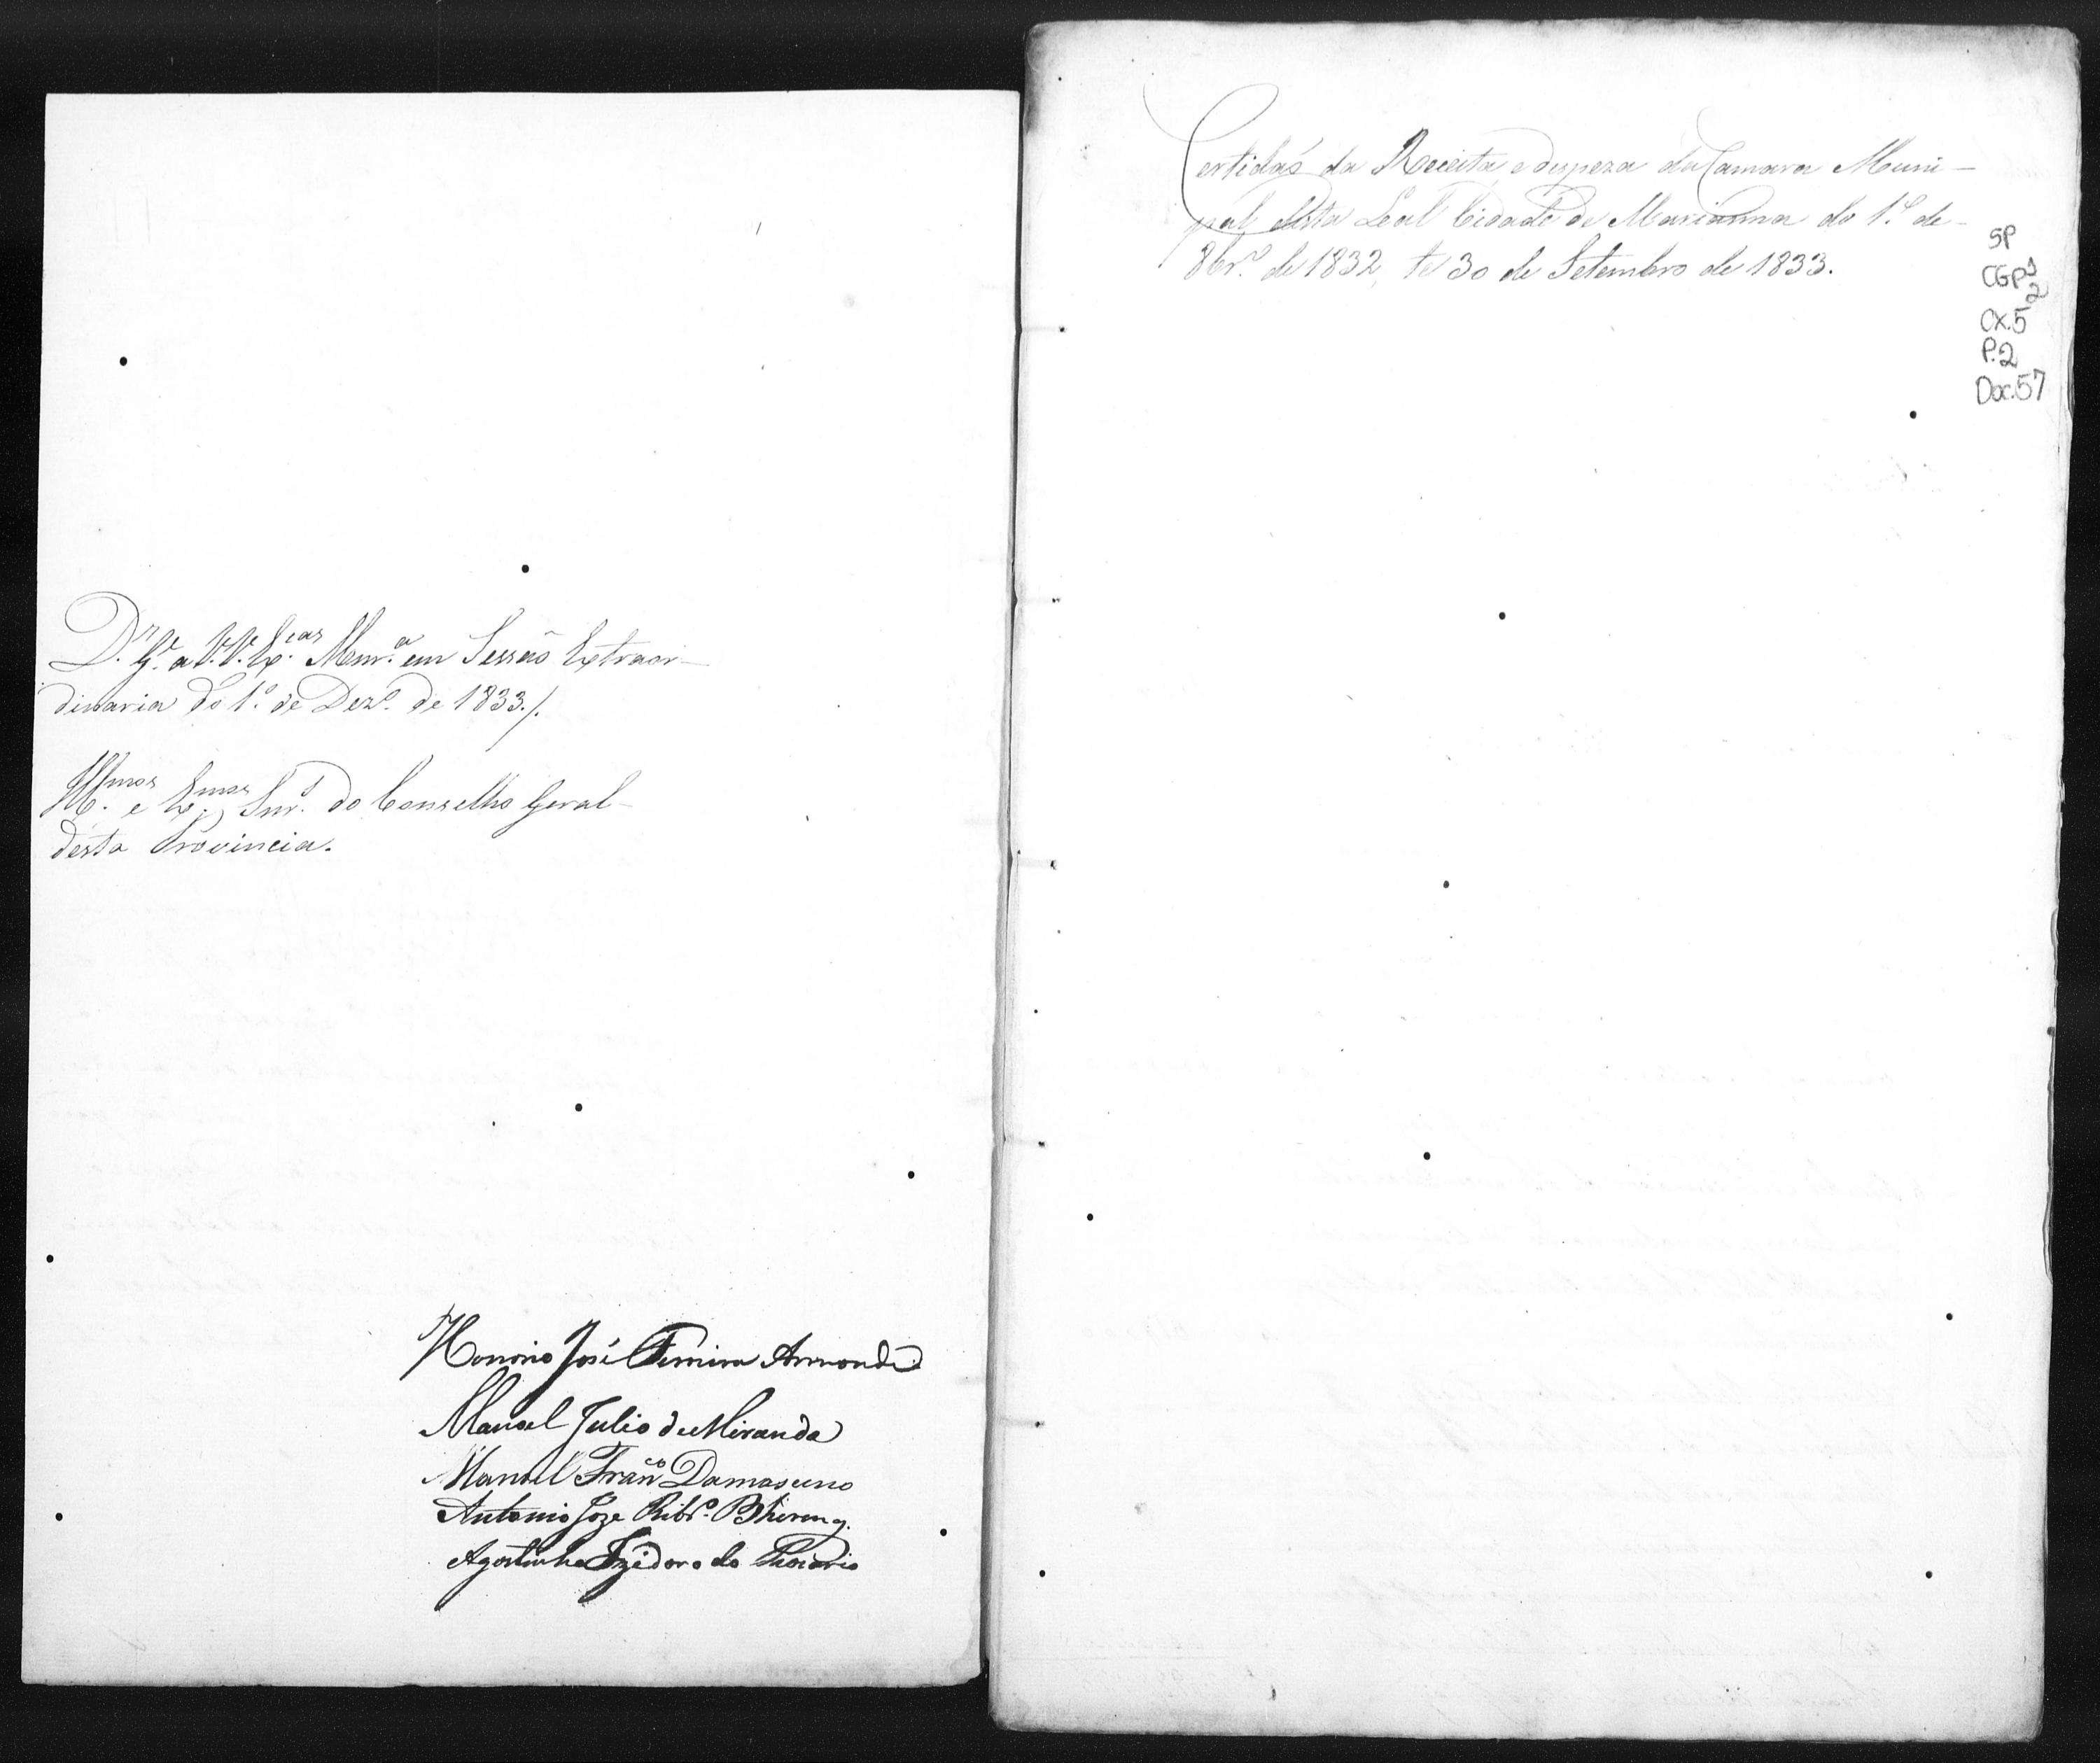 D.s G.e a V.V. Ex.cias Marr.a em Sessão Extraor-
dinaria do 1.º de Dezr.º de 1833./.
Ill.mos e Ex.mos Snr.s do Conselho Geral
desta Provincia.
Honorio José Ferreira Armonde
Manoel Julio de Miranda
Manoel Fran.co Damasceno
Antonio Joze Ribr.º Bhering
Agostinho Izidoro do Rosario
Certidaõ da Receita e despeza da Camara Muni-
pal desta Leal Cidade de Marianna do 1.º de
8br.º de 1832, te 30 de Setembro de 1833.
SP
CGP 1/2
CX.5
P.2
Doc.57